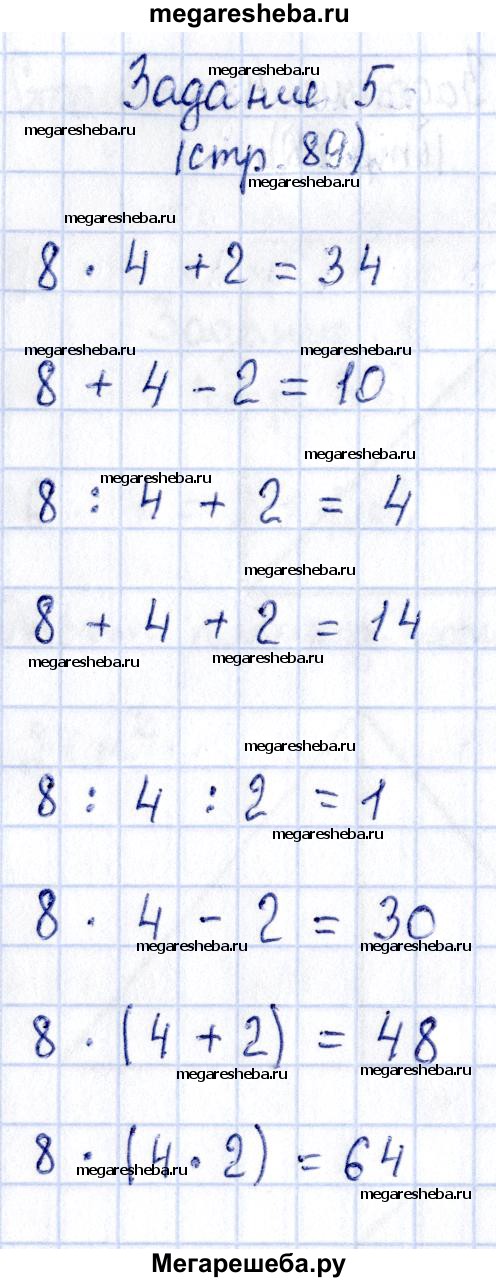 megaresheba.ru
megaresheba.ru
Задание 5
megaresheba.ru
(стр. 89)
megaresheba.ru
megaresheba.ru
8 · 4 + 2 = 34
megaresheba.ru megaresheba.ru
8 + 4 - 2 = 10
megaresheba.ru
megaresheba.ru
8 : 4 + 2 = 4
megaresheba.ru
8 + 4 + 2 = 14
megaresheba.ru megaresheba.ru
megaresheba.ru
8 : 4 : 2 = 1
megaresheba.ru
8 · 4 - 2 = 30
megaresheba.ru megaresheba.ru
8 · (4 + 2) = 48
megaresheba.ru megaresheba.ru
8 · (4 · 2) = 64
megaresheba.ru
megaresheba.ru
Мегарешеба.ру